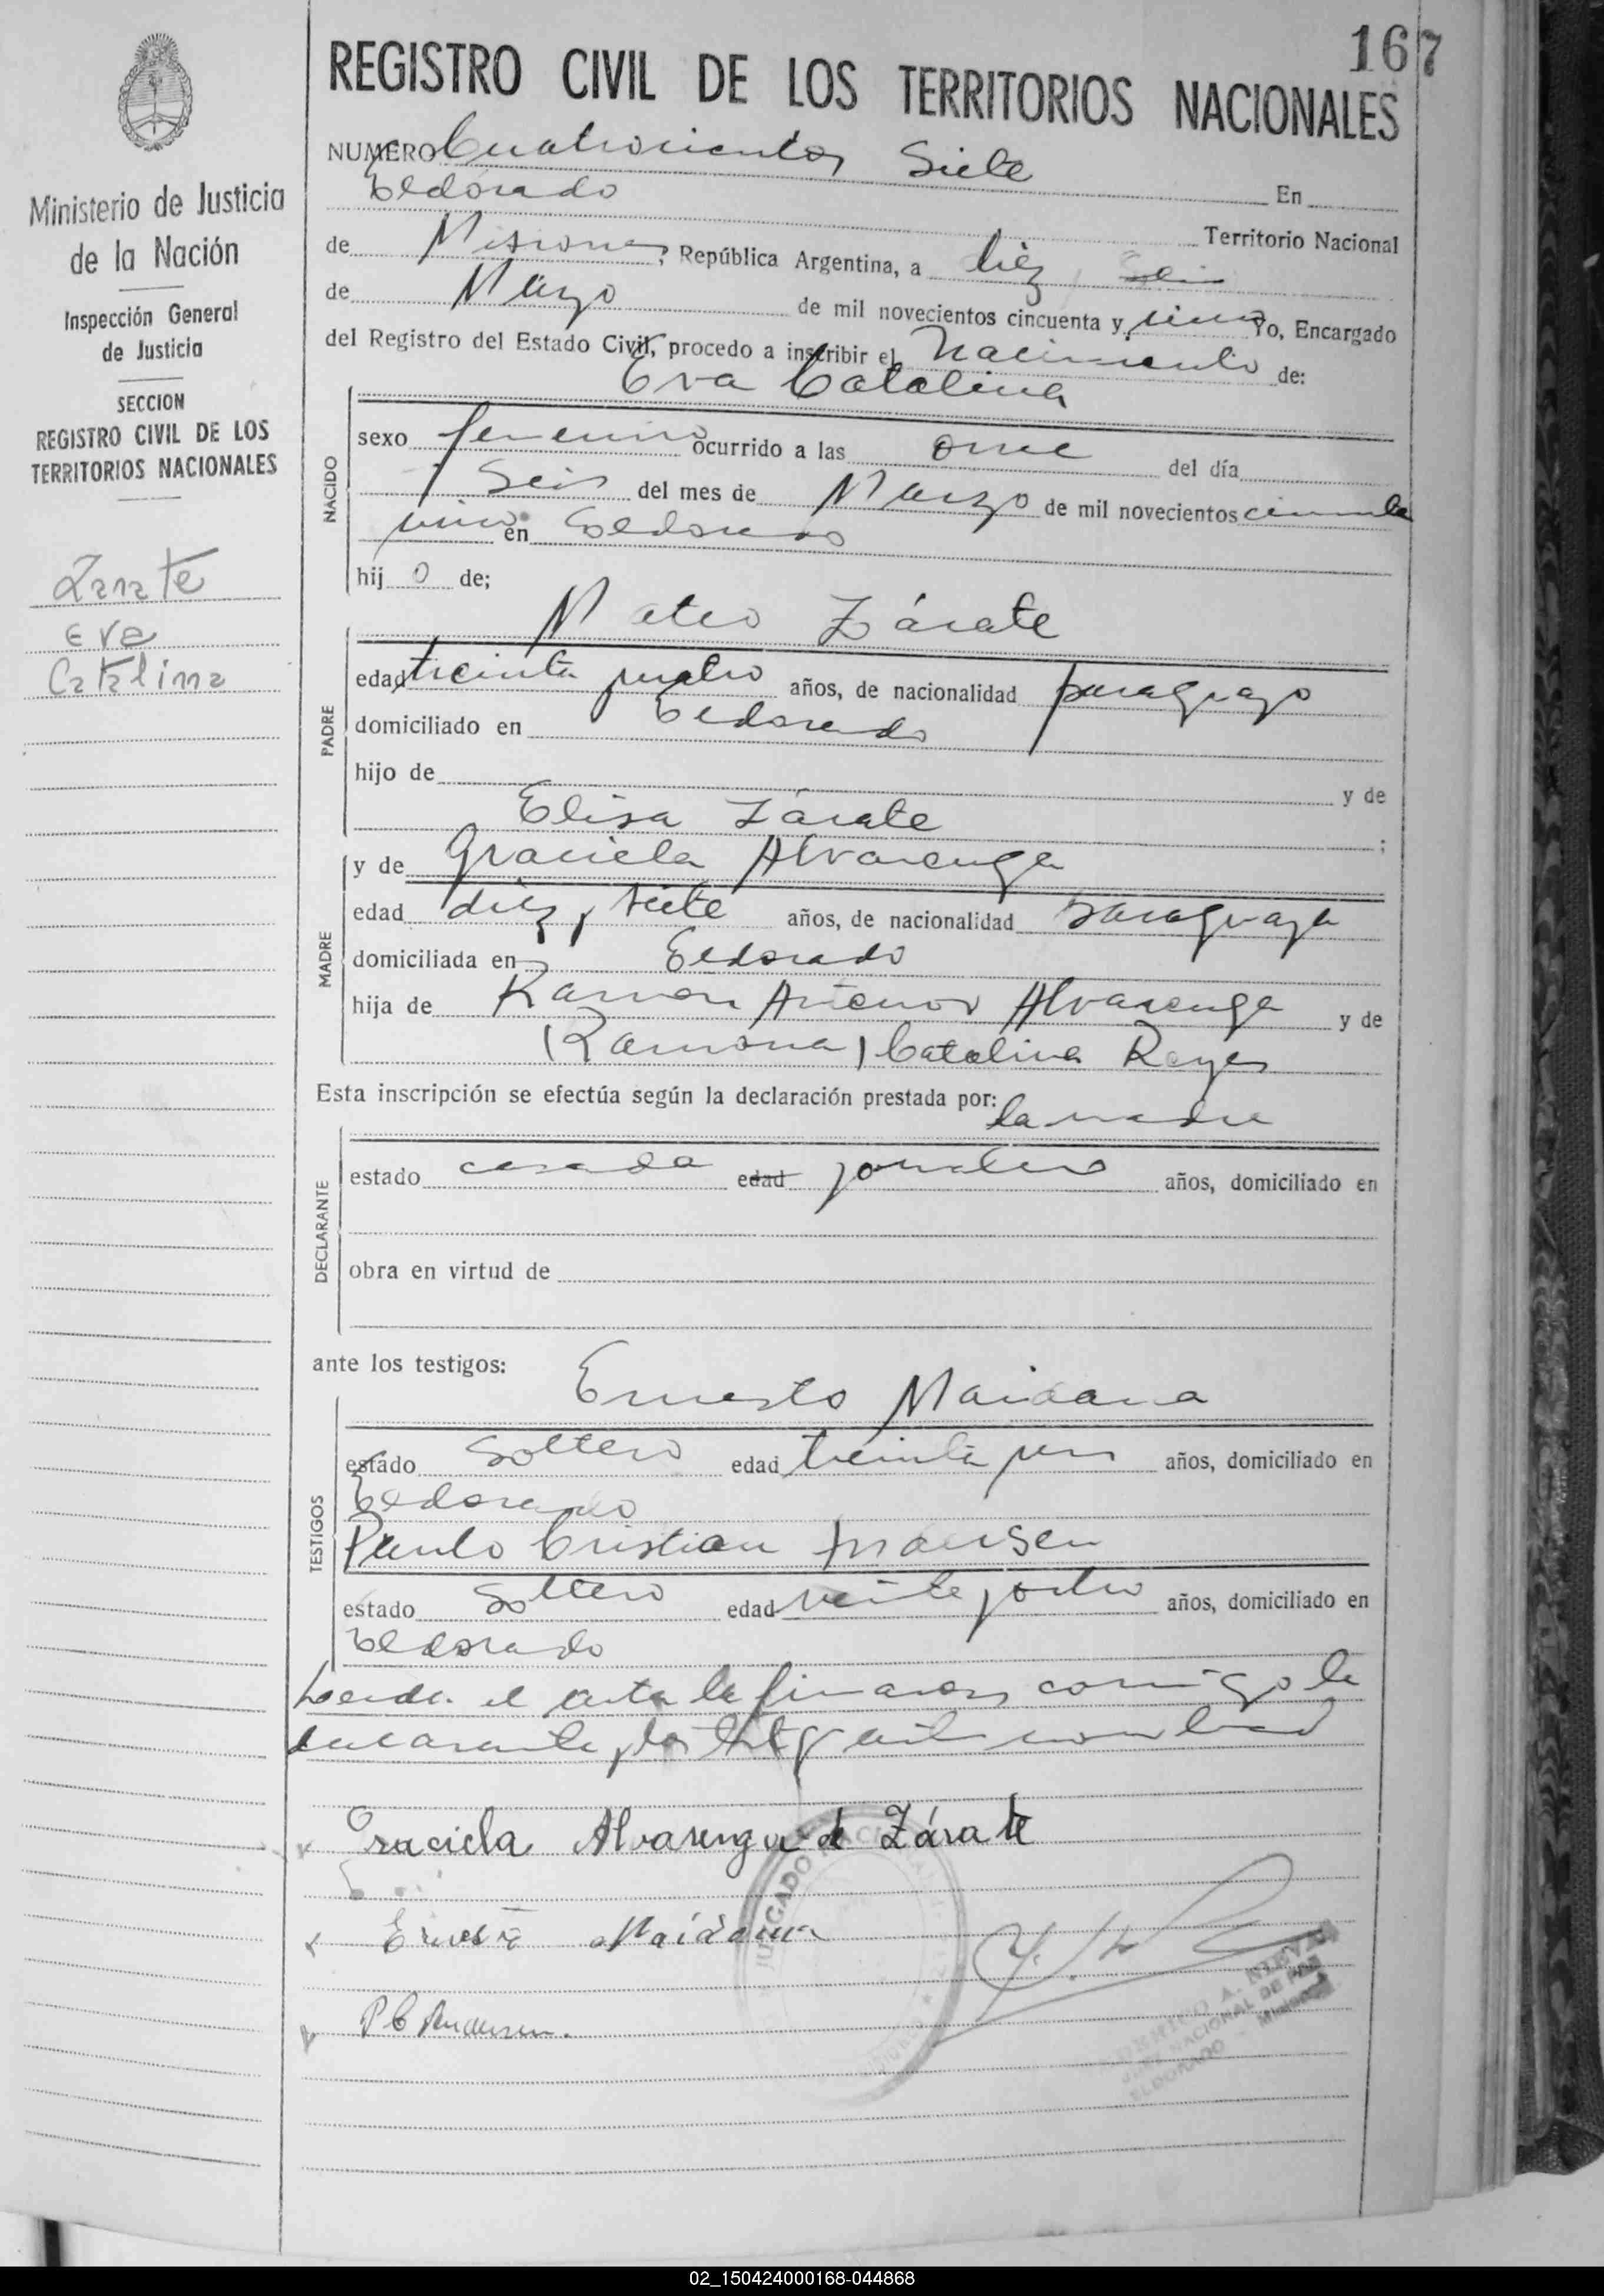 167
REGISTRO CIVIL DE LOS TERRITORIOS NACIONALES
Ministerio de Justicia
de la Nación
Inspección General
de Justicia
SECCION
REGISTRO CIVIL DE LOS
TERRITORIOS NACIONALES
Zarate
Eva
Catalina
NUMERO Cuatrocientos Siete En
Eldorado Territorio Nacional
de Misiones, República Argentina, a diez
de Marzo de mil novecientos cincuenta y uno Yo, Encargado
del Registro del Estado Civil, procedo a inscribir el Nacimiento de:
Eva Catalina
NACIDO
sexo femenino ocurrido a las once del día
Seis del mes de Marzo de mil novecientos
uno en Eldorado
hij o de;
Mateo Zárate
PADRE
edad treinta cuatro años, de nacionalidad paraguayo
domiciliado en Eldorado
hijo de y de
Elisa Zárate ;
y de Graciela Alvarenga
MADRE
edad diez y siete años, de nacionalidad paraguaya
domiciliada en Eldorado
hija de Ramon Antenor Alvarenga y de
(Ramona) Catalina Reyes
Esta inscripción se efectúa según la declaración prestada por:
la madre
DECLARANTE
estado casada edad años, domiciliado en
obra en virtud de
ante los testigos:
Ernesto Maidana
TESTIGOS
estado soltero edad treinta y un años, domiciliado en
Eldorado
Paulo Cristian Andersen
estado soltero edad veinte y ocho años, domiciliado en
Eldorado
el acta la firman conmigo la
declarante y los
Graciela Alvarenga de Zárate
Ernesto Maidana
P C Andersen.
JUZGADO NACIONAL
A. NIEVA
NACIONAL DE PAZ
ELDORADO - Misiones
02_150424000168-044868